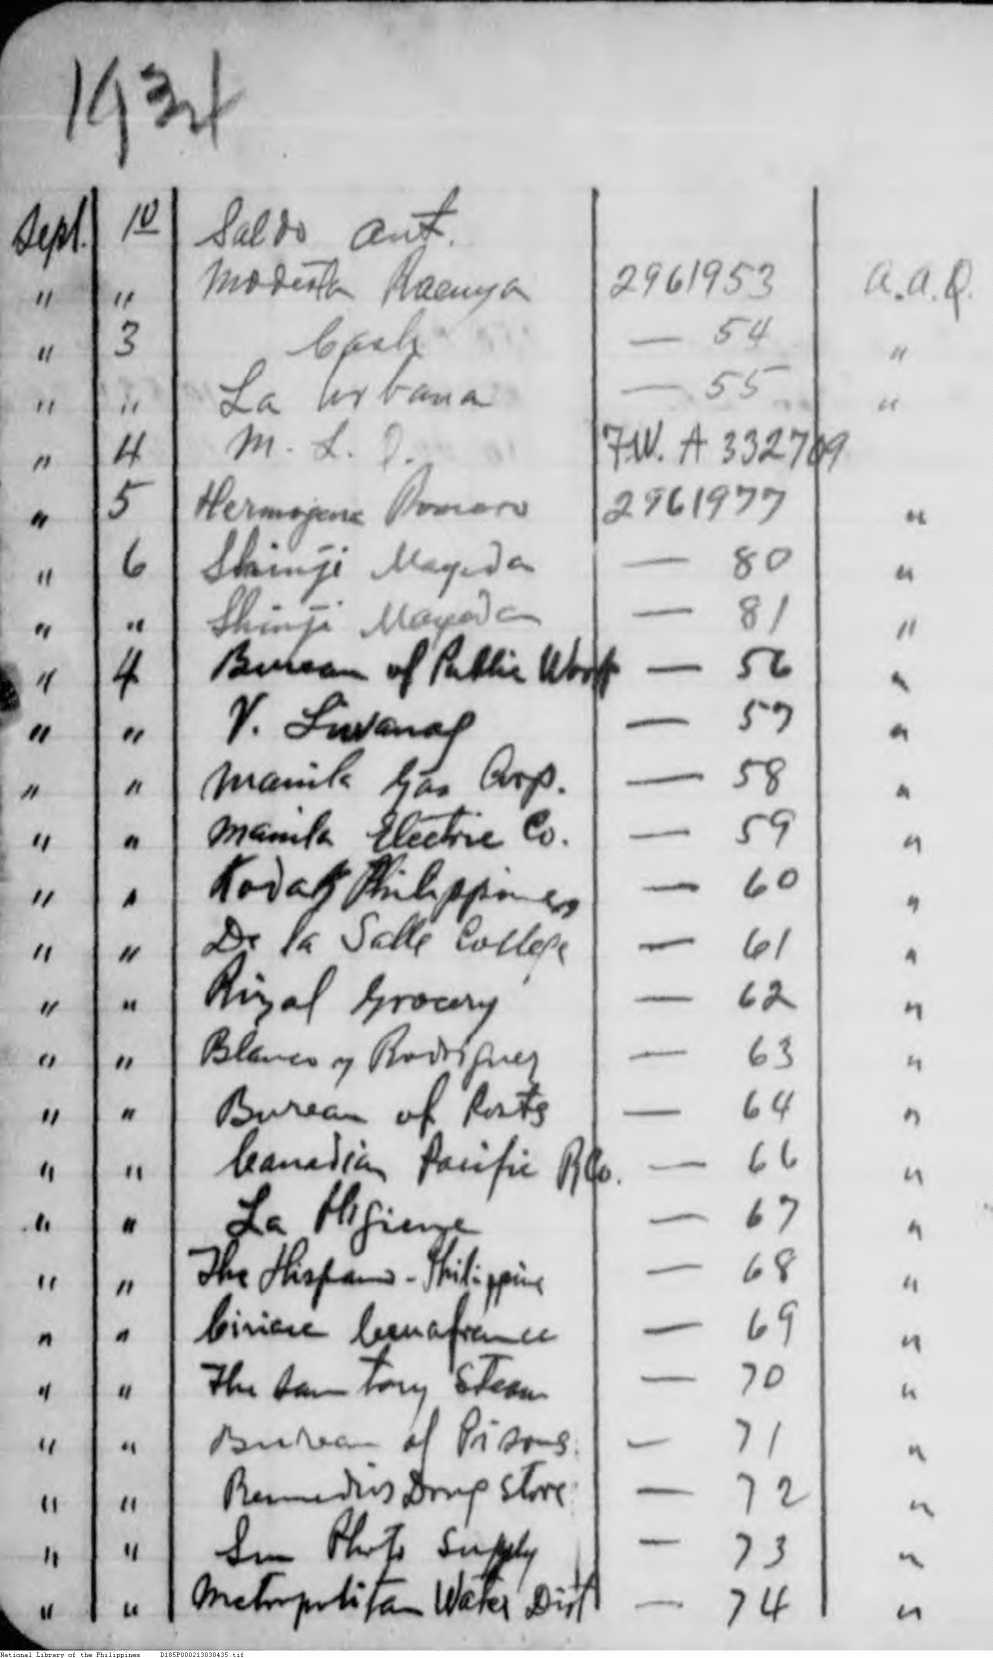 1934
Sept. 10 Saldo ant.
" " Modesta 2961953 A.A.Q.
" 3 Cash — 54 "
" " La Urbana — 55 "
" 4 M. L. F.W. A 332709
" 5 Hermogena Romero 2961977 "
" 6 Shinji Mayeda — 80 "
" " Shinji Mayeda — 81 "
" 4 Bureau of Public Works — 56 "
" " V. Liwanag — 57 "
" " Manila Gas Corp. — 58 "
" " Manila Electric Co. — 59 "
" " Kodak Philippines — 60 "
" " De la Salle College — 61 "
" " Rizal Grocery — 62 "
" " Blanco y Rodriguez — 63 "
" " Bureau of Posts — 64 "
" " Canadian Pacific R Co. — 66 "
" " La Higiene — 67 "
" " The Hispano-Philippine — 68 "
" " — 69 "
" " The Sanitory Steam — 70 "
" " Bureau of Prisons. — 71 "
" " Remedios Drug Store — 72 "
" " Sun Photo Supply — 73 "
" " Metropolitan Water Dist — 74 "
National Library of the Philippines D185P000213030435.tif